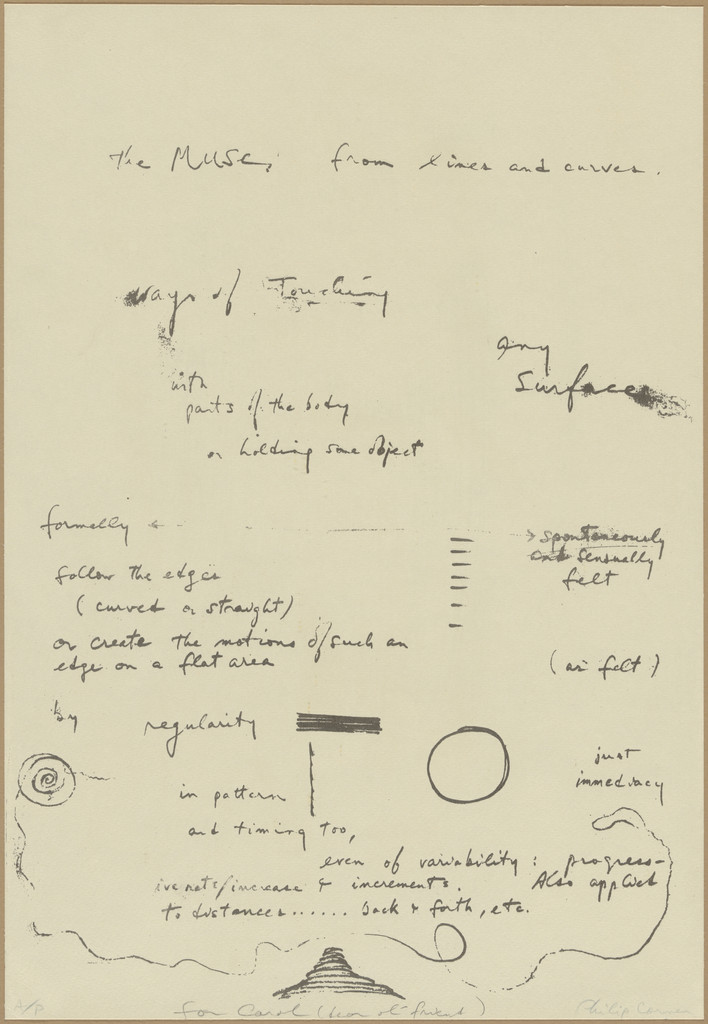 The MUSE, from lines and curves.
ways of Touching
any
Surface
with
parts of the body
or holding some object
formally
spontaneously
Sensually
felt
follow the edges
(curved or straight)
or create the motions of such an
edge on a flat area
(as felt)
by regularity
just
immediacy
in pattern
and timing too,
even of variability: progress-
ive rate/increase & increments. Also applied
to distances...... back & forth, etc.
A/P
for Carol
Philip Corner